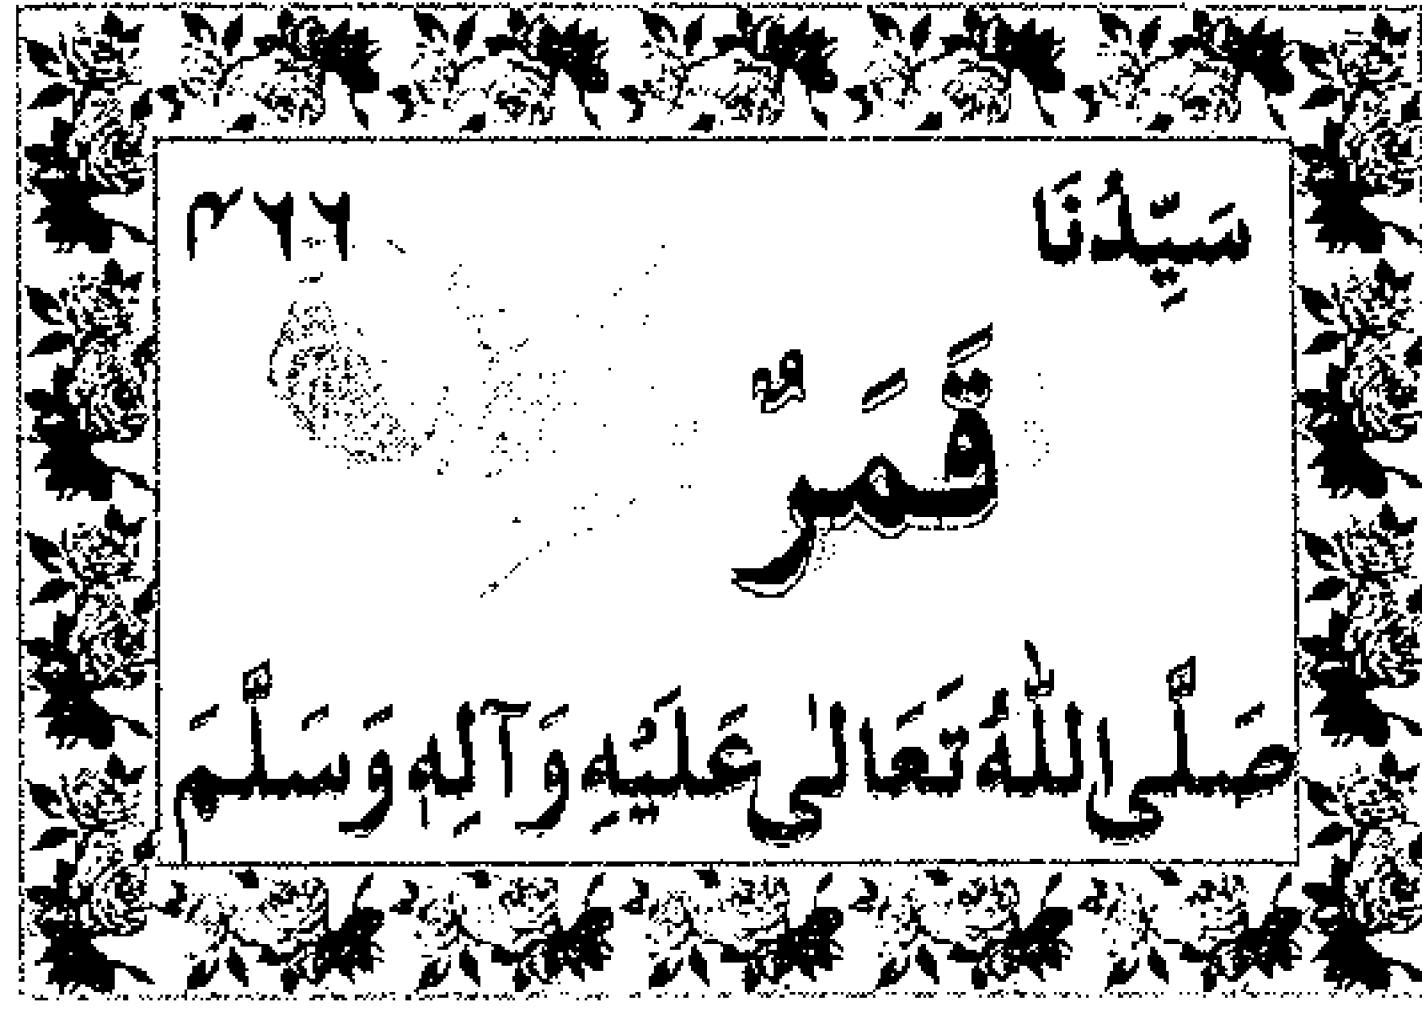 سَيِّدُنَا ٣٦٦
قَمَرٌ
صَلَّى اللّٰهُ تَعَالٰى عَلَيْهِ وَآلِهٖ وَسَلَّمَ